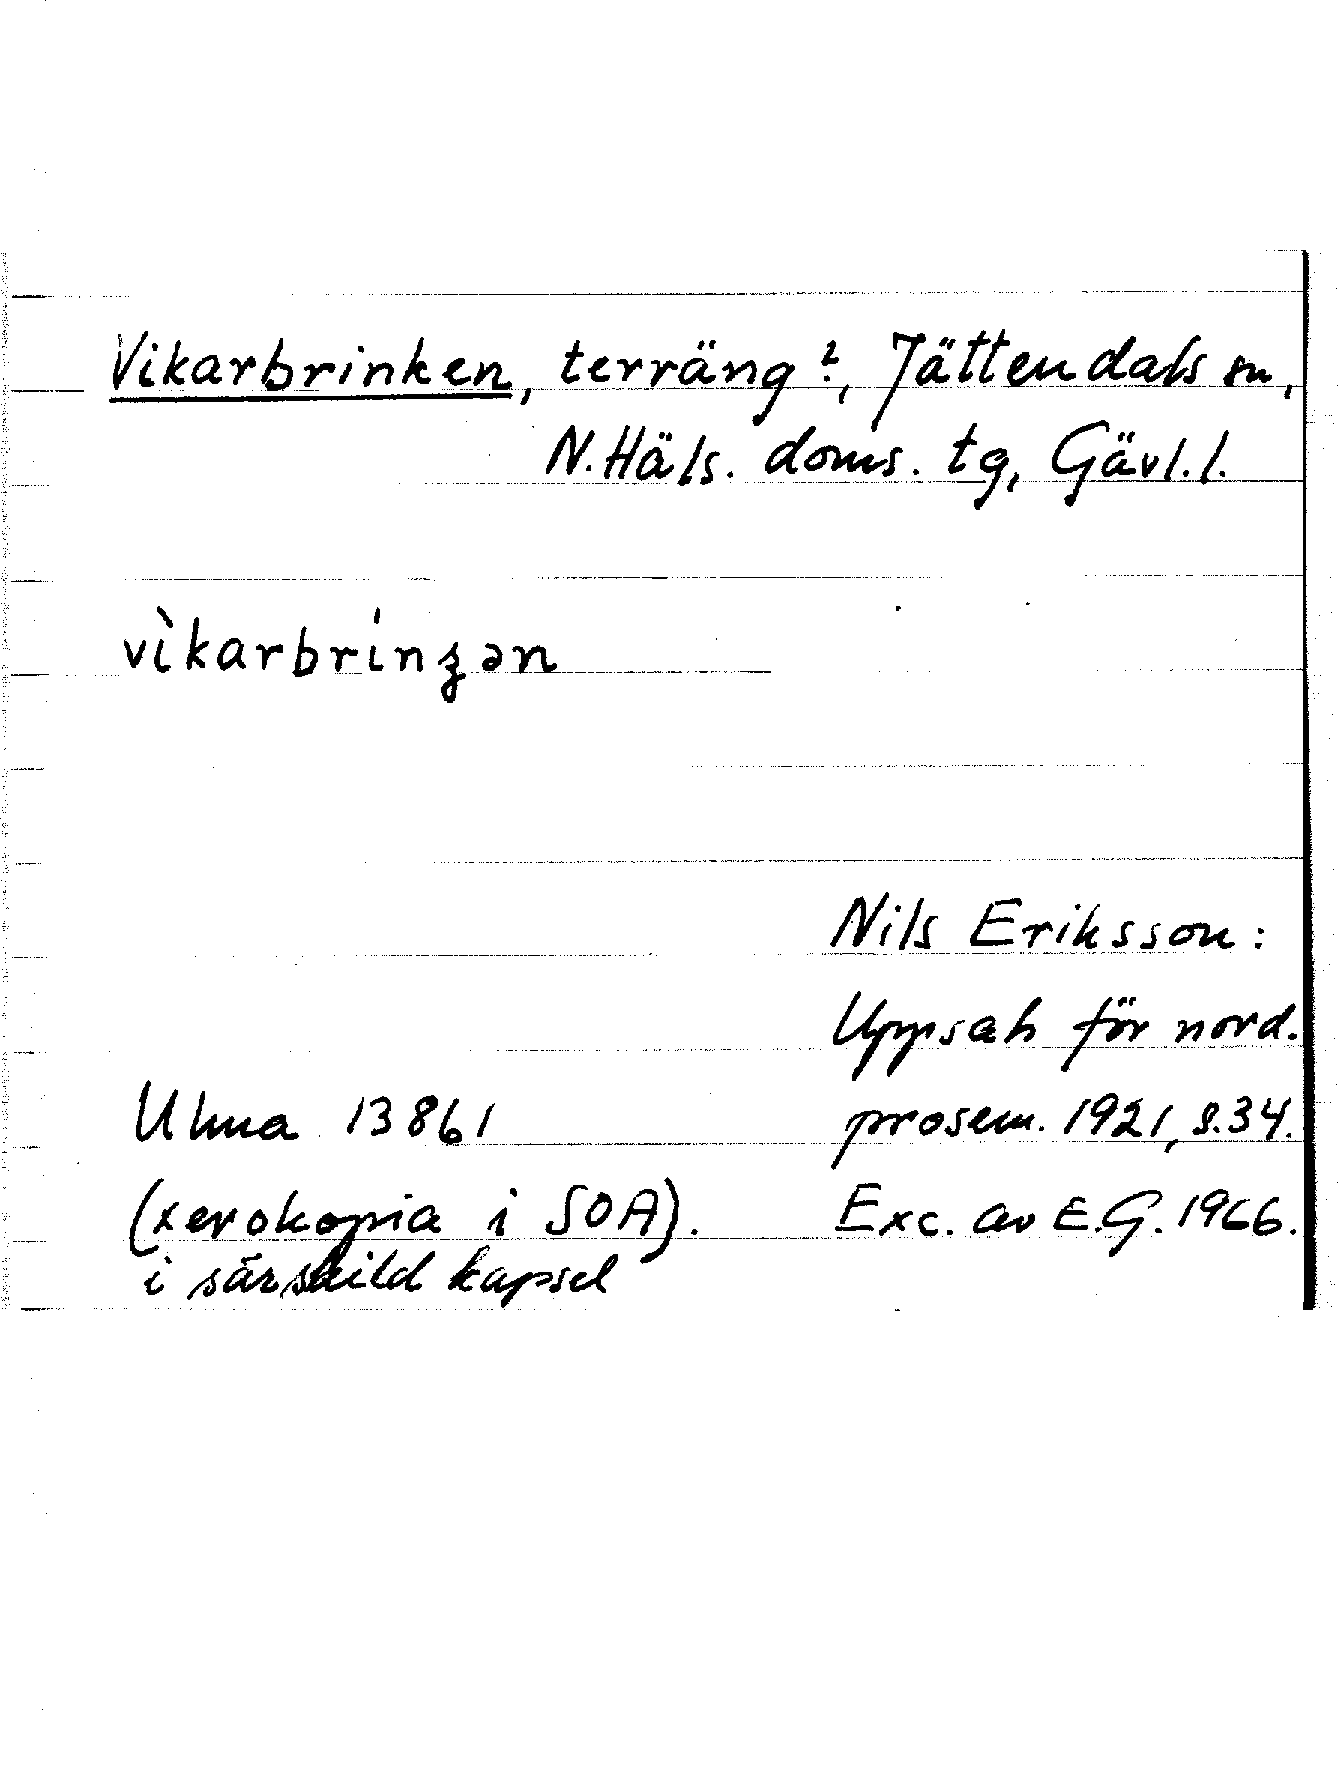 Vikarbrinken, terräng?, Jättendals sn,
N. Häls. doms. tg, Gävl. l.
vìkarbrinʓən
Nils Eriksson:
Uppsats för nord.
prosem. 1921, s. 34.
Ulma 13861
(xerokopia i SOA).
i särskild kapsel
Exc. av E.G. 1966.